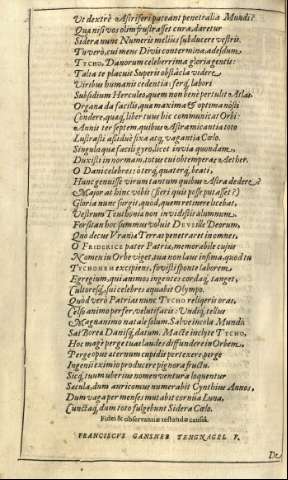 Ut dextrè Astriferi pateant penetralia Mundi?
Quam si vos olim frustra set cura, daretur
Sidera nunc Numeris melius subducere vestris.
Tu verò, cui mens Divis contermina, adesdum
TYCHO, Danorum celeberrima gloria gentis:
Talia te placuit Superis obstacla videre
Viribus humanis cedentia: ferq, labori
Subsidium Hercules, quem non benè pertulit Atlas.
Organa da facili, qua maxima & optima nosti
Condere, quaq, liber tuus hic communicat Orbi:
Annis ter septem, quibus Astra micantia toto
Lustrasti assiduè fixa atq, vagantia Cœlo.
Singula quæ facili gyro, licet invia quondam,
Duxisti in normam, totus cui obtemperat Æther.
O Dani celebres: ô terq, quaterq, beati,
Hunc genuisse virum tantum quibus Astra dedere
Major at hinc vobis (fieri quis posse putasset?)
Gloria nunc surgit, quod, quem retinere licebat,
Vestrum Teutonia non invidistis alumnum.
Forsitan hoc summus voluit DEVS ille Deorum,
Quo decus Vrania Terras penetraret in omnes.
O FRIDERICE pater Patriæ, memorabile cujus
Nomen in Orbe viget, tua non laus infima, quod tu
TYCHONEM excipiens, fovisti sponte laborem
Egregium, qui animos ingentes cordaq, tanget,
Cultoresq, sui celebres æquabit Olympo.
Quod verò Patriam nunc TYCHO reliquerit oras,
Celso animo perfer, velut facis: Undiq, tellus
Magnanimo natale solum. Salve incola Mundi,
Sat Borea Danisq, datum. Macte inclyte TYCHO,
Hoc magè perge tuas laudes diffundere in Orbem.
Perge opus æternum cupidis portexere, perge
Ingenii eximio producere pignora fructu.
Sicq, tuum serius nomen ventura loquentur
Secula, dum auricomus numerabit Cynthius Annos,
Dum vaga per menses mutabit cornua Luna,
Cunctaq, dum toto fulgebunt Sidera Cœlo.
Fidei & observantiæ testandæ causâ.
FRANCISCVS GANSNEB TENGNAGEL F.
De